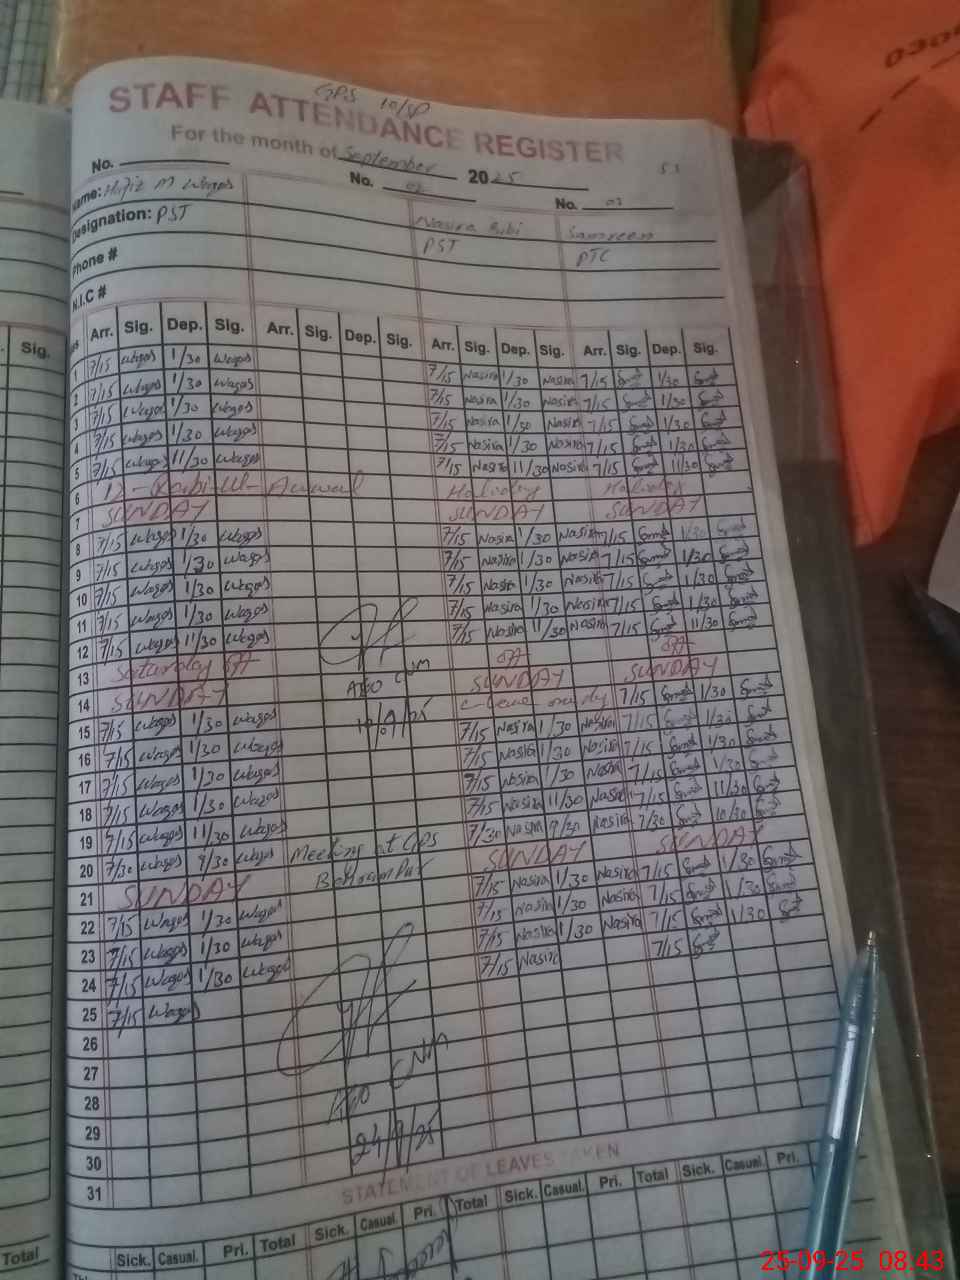 GPS 10/SP
STAFF ATTENDANCE REGISTER
For the month of September 2025
No. No. 02 No. 03
Name: Hafiz M Waqas Nasira Bibi Samreen
Designation: PST PST PTC
Phone #
N.I.C #
Arr. Sig. Dep. Sig. Arr. Sig. Dep. Sig. Arr. Sig. Dep. Sig. Arr. Sig. Dep. Sig.
1 7/15 Waqas 1/30 Waqas 7/15 Nasira 1/30 Nasira 7/15 1/30
2 7/15 Waqas 1/30 Waqas 7/15 Nasira 1/30 Nasira 7/15 1/30
3 7/15 Waqas 1/30 Waqas 7/15 Nasira 1/30 Nasira 7/15 1/30
4 7/15 Waqas 1/30 Waqas 7/15 Nasira 1/30 Nasira 7/15 1/30
5 7/15 Waqas 11/30 Waqas 7/15 Nasira 11/30 Nasira 7/15 11/30
6 12-Rabi-Ul-Awwal Holiday Holiday
7 SUNDAY SUNDAY SUNDAY
8 7/15 Waqas 1/30 Waqas 7/15 Nasira 1/30 Nasira 7/15 1/30
9 7/15 Waqas 1/30 Waqas 7/15 Nasira 1/30 Nasira 7/15 1/30
10 7/15 Waqas 1/30 Waqas 7/15 Nasira 1/30 Nasira 7/15 1/30
11 7/15 Waqas 1/30 Waqas 7/15 Nasira 1/30 Nasira 7/15 1/30
12 7/15 Waqas 11/30 Waqas 7/15 Nasira 11/30 Nasira 7/15 11/30
13 Saturday off off off
14 SUNDAY SUNDAY SUNDAY
15 7/15 Waqas 1/30 Waqas c-leave one day 7/15 1/30
16 7/15 Waqas 1/30 Waqas 7/15 Nasira 1/30 Nasira 7/15 1/30
17 7/15 Waqas 1/30 Waqas 7/15 Nasira 1/30 Nasira 7/15 1/30
18 7/15 Waqas 1/30 Waqas 7/15 Nasira 1/30 Nasira 7/15 1/30
19 7/15 Waqas 11/30 Waqas 7/15 Nasira 11/30 Nasira 7/15 11/30
20 7/30 Waqas 9/30 Waqas Meeting at GPS 7/30 Nasira 9/30 Nasira 7/30 10/30
21 SUNDAY SUNDAY SUNDAY
22 7/15 Waqas 1/30 Waqas 7/15 Nasira 1/30 Nasira 7/15 1/30
23 7/15 Waqas 1/30 Waqas 7/15 Nasira 1/30 Nasira 7/15 1/30
24 7/15 Waqas 1/30 Waqas 7/15 Nasira 1/30 Nasira 7/15 1/30
25 7/15 Waqas 7/15 Nasira 7/15
26
27
28
29
30
31
AEO CNM
24/9/25
STATEMENT OF LEAVES TAKEN
Sick. Casual. Pri. Total Sick. Casual. Pri. Total Sick. Casual. Pri. Total Sick. Casual. Pri.
Sig.
Total
25-09-25 08:43